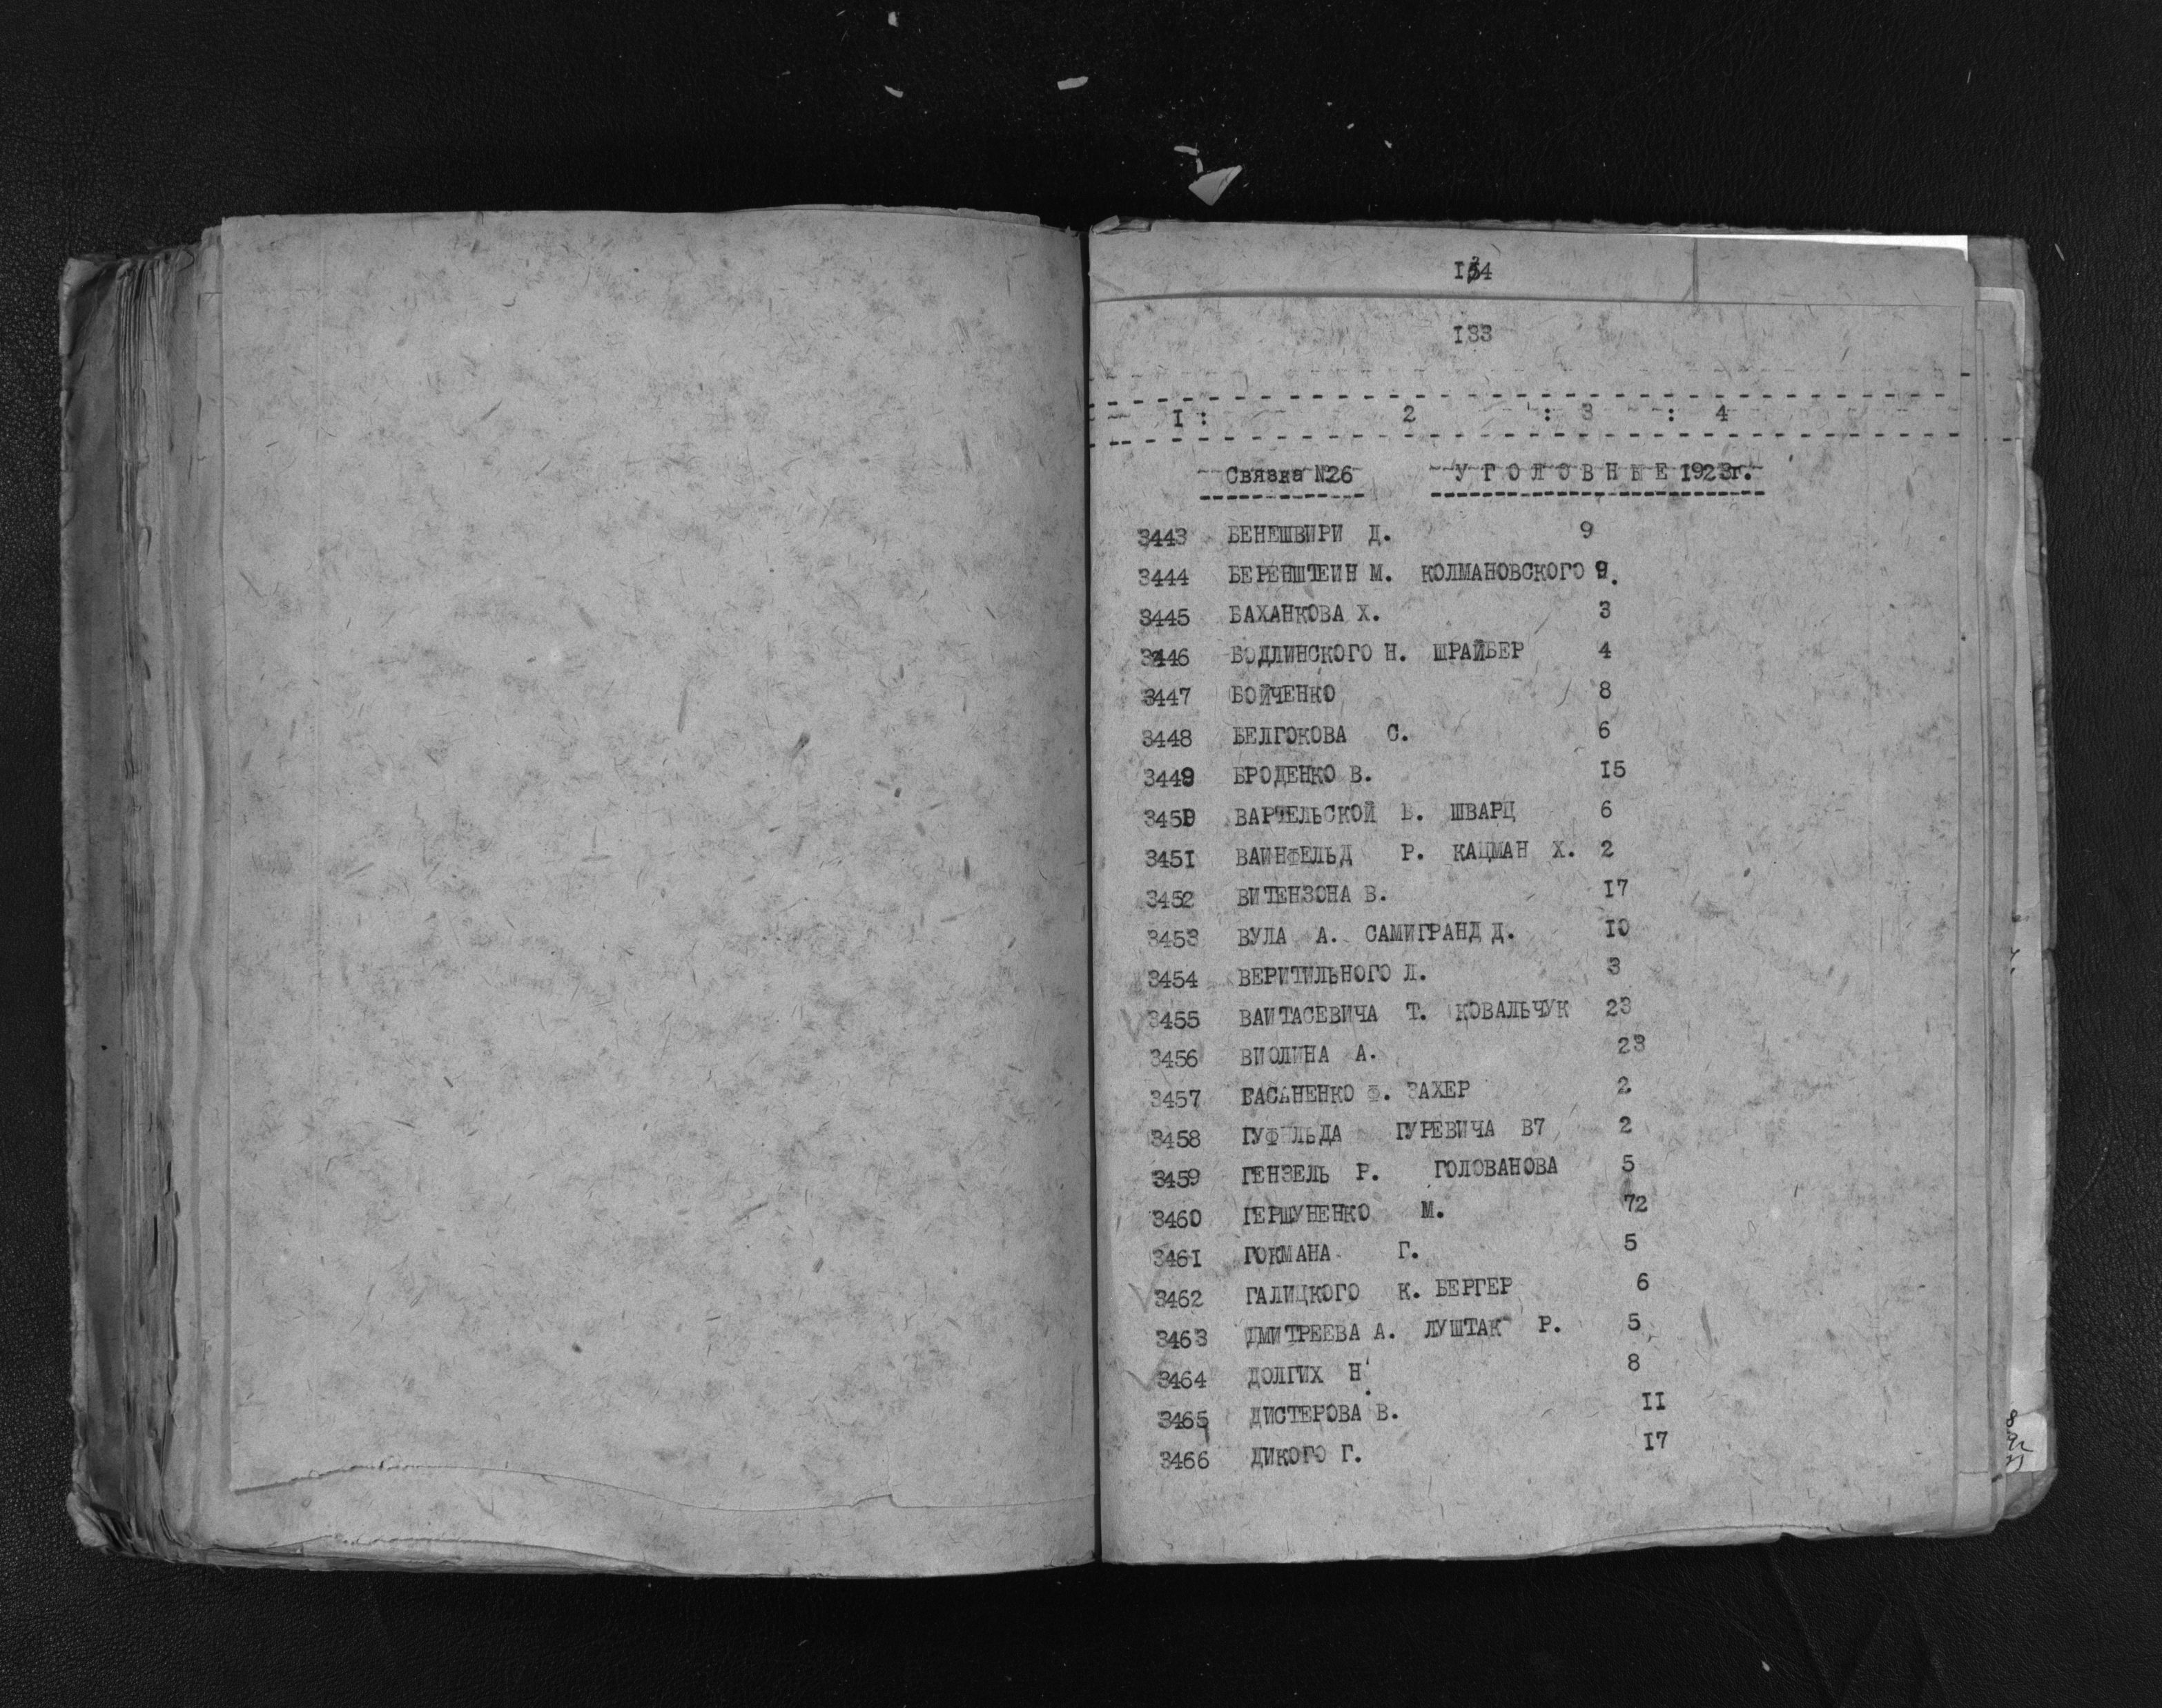 134
133
1 : 2 : 3 : 4
Связка №26 УГОЛОВНЫЕ 1923г.
3443 БЕНЕШВИРИ Д. 9
3444 БЕРЕНШТЕИН М. КОЛМАНОВСКОГО 9.
3445 БАХАНКОВА Х. 3
3446 БОДЛИНСКОГО Н. ШРАЙБЕР 4
3447 БОЙЧЕНКО 8
3448 БЕЛГОКОВА С. 6
3449 БРОДЕНКО В. 15
3450 ВАРТЕЛЬСКОЙ В. ШВАРЦ 6
3451 ВАИНФЕЛЬД Р. КАЦМАН Х. 2
3452 ВИТЕНЗОНА В. 17
3453 ВУЛА А. САМИГРАНД Д. 10
3454 ВЕРИТИЛЬНОГО Л. 3
3455 ВАИТАСЕВИЧА Т. КОВАЛЬЧУК 23
3456 ВИОЛИНА А. 23
3457 ВАСАНЕНКО Ф. ЗАХЕР 2
3458 ГУФЕЛЬДА ГУРЕВИЧА В7 2
3459 ГЕНЗЕЛЬ Р. ГОЛОВАНОВА 5
3460 ГЕРШУНЕНКО М. 72
3461 ГОКМАНА Г. 5
3462 ГАЛИЦКОГО К. БЕРГЕР 6
3463 ДМИТРЕЕВА А. ЛУШТАК Р. 5
3464 ДОЛГИХ Н. 8
3465 ДИСТЕРОВА В. 11
3466 ДИКОГО Г. 17